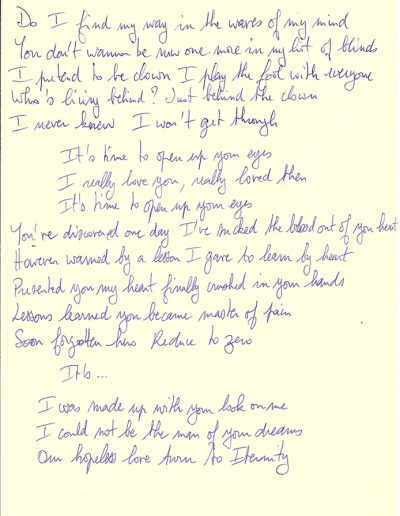 Do I find my way in the waves of my mind
You don't wanna be now one more in my list of blinds
I pretend to be clown I play the fool with everyone
Who's living behind? Just behind the clown
I never knew I won't get through
It's time to open up your eyes
I really love you, really loved then
It's time to open up your eyes
You're discovered one day I've sucked the blood out of your heart
However warned by a lesson I gave to learn by heart
Presented you my heart finally crushed in your hands
Lessons learned you became master of pain
Soon forgotten Reduce to zero
It's ...
I was made up with your look on me
I could not be the man of your dreams
Our hopeless love turn to Eternity